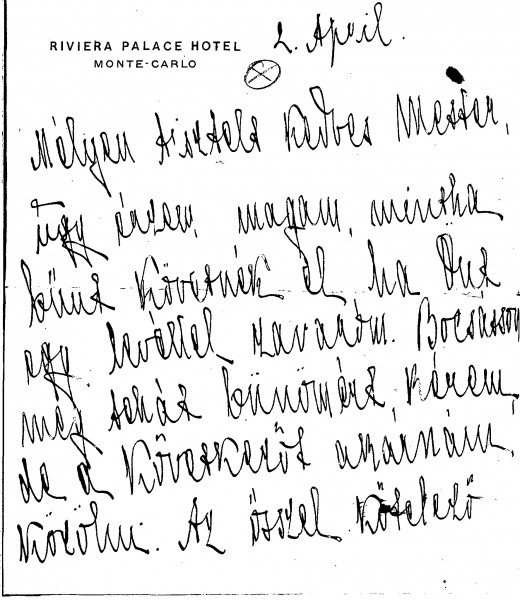 RIVIERA PALACE HOTEL
MONTE-CARLO
2. April.
Mélyen tisztelt kedves Mester,
úgy érzem magam, mintha
bünt követnék el ha Önt
egy levéllel zavarom. Bocsásson
meg tehát bünömért, kérem,
de a következöt akarnám
közölni. Az összel kötelezö